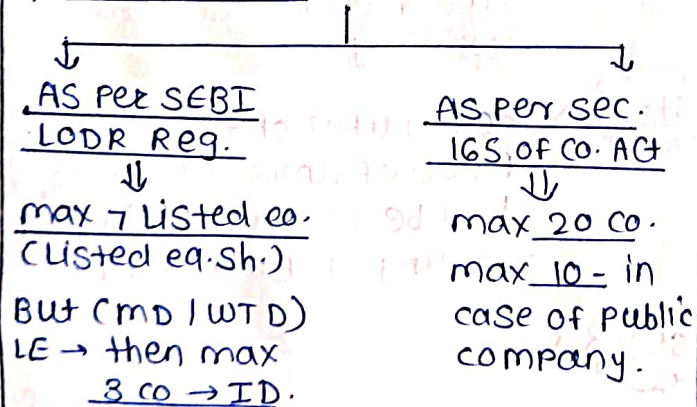 AS per SEBI
LODR Reg.
max 7 Listed co.
(Listed eq.sh.)
But (MD / WTD)
LE → then max
3 co → ID.
AS per sec.
165. of co. Act
max 20 co.
max 10 - in
case of public
company.